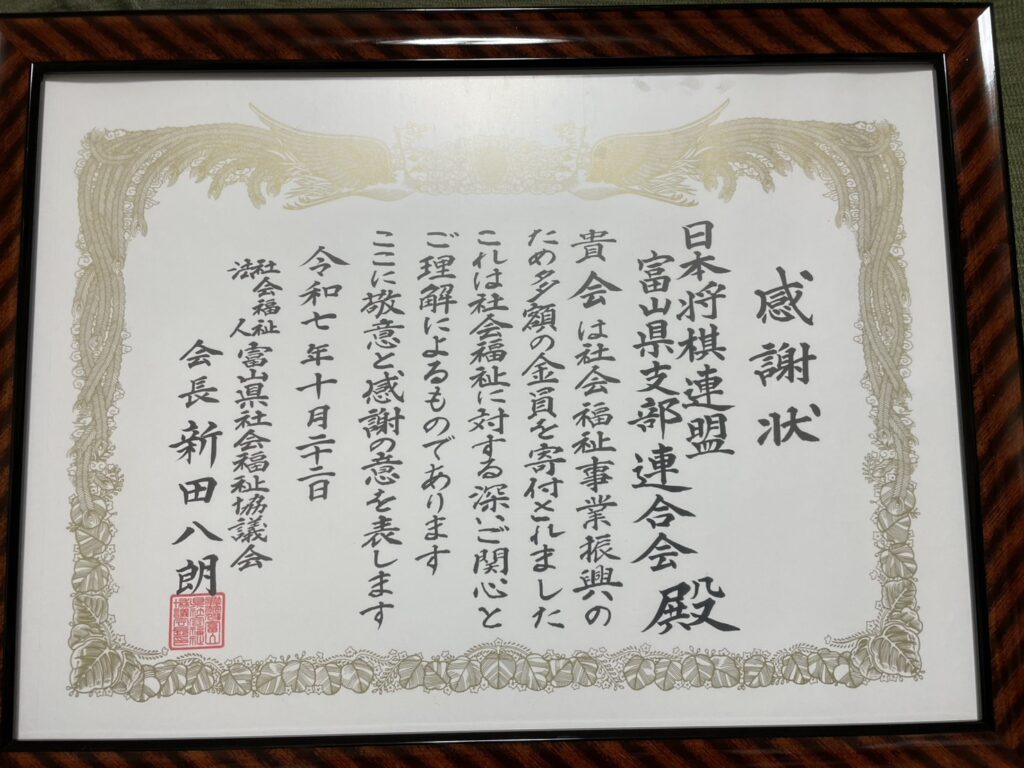 感謝状
日本将棋連盟
富山県支部連合会 殿
貴会は社会福祉事業振興の
ため多額の金員を寄付されました
これは社会福祉に対する深いご関心と
ご理解によるものであります
ここに敬意と感謝の意を表します
令和七年十月二十二日
社会福祉法人 富山県社会福祉協議会
会長 新田八朗